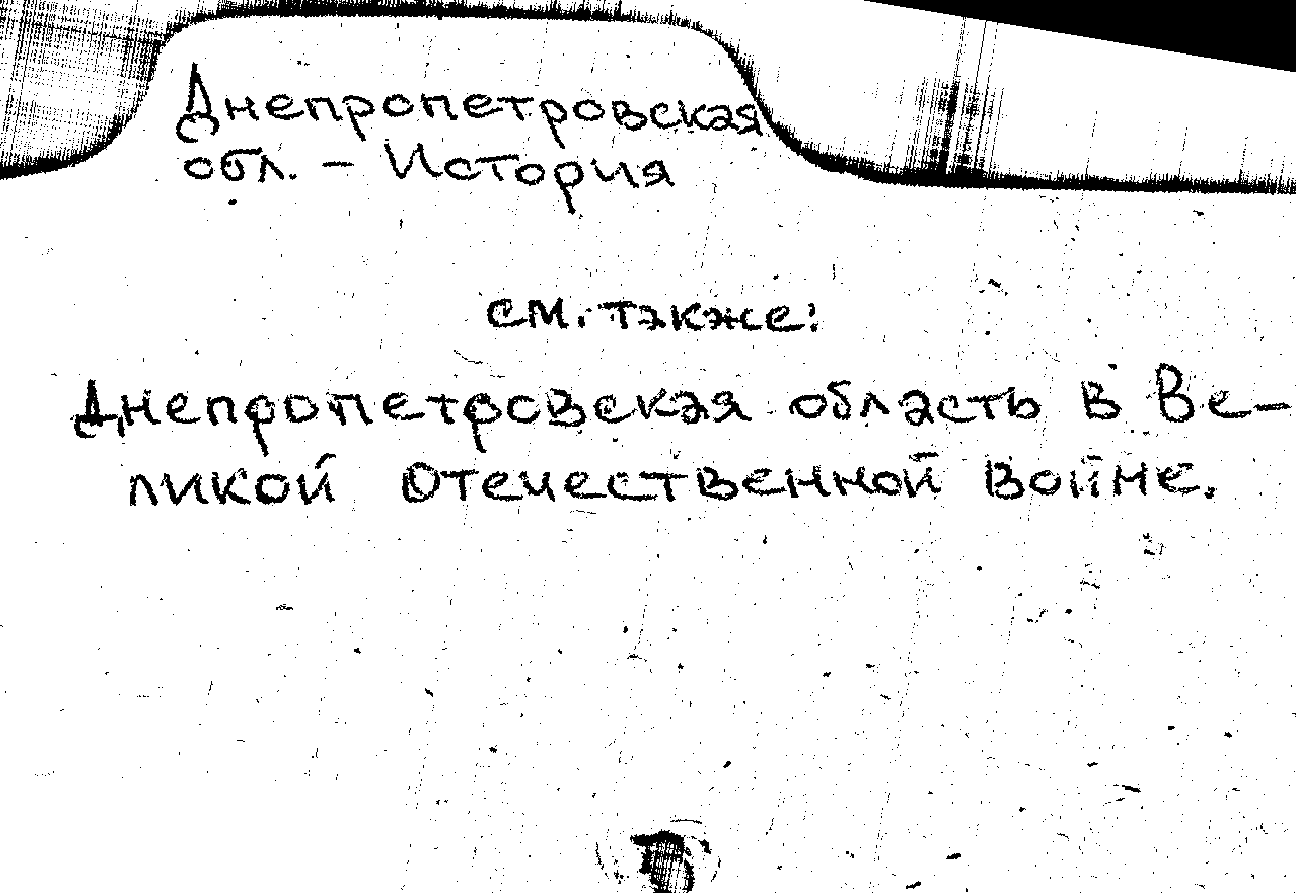 Днепропетровская
обл. - История
см. также:
Днепропетровская область в Ве-
ликой Отечественной войне.